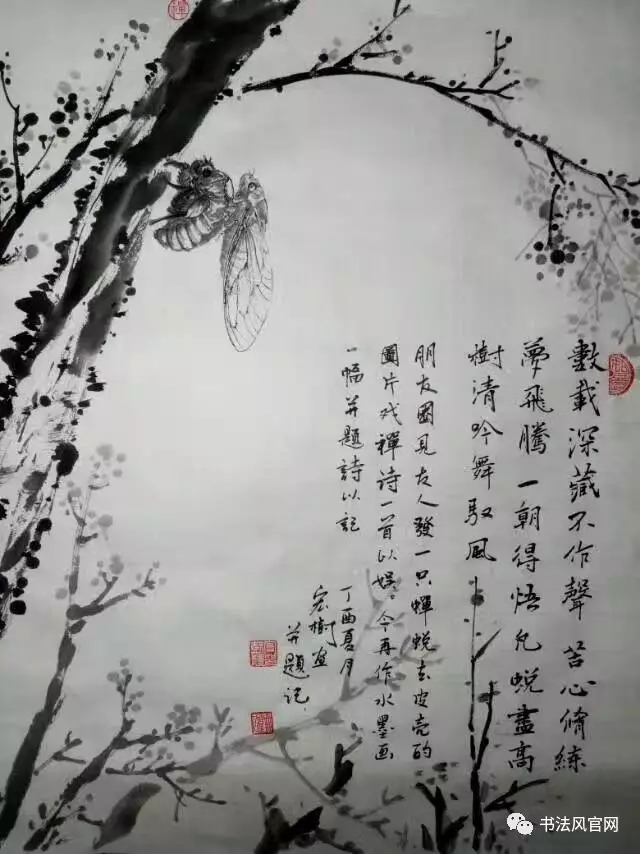 數載深藏不作聲 苦心脩練
夢飛騰一朝得悟凡蛻盡高
樹清吟舞馭風
朋友圈見友人發一只蟬蛻去皮壳的
圖片戏禪诗一首以娱 今再作水墨画
一幅并題詩以記
丁酉夏月
宏樹画
并題记
书法风官网